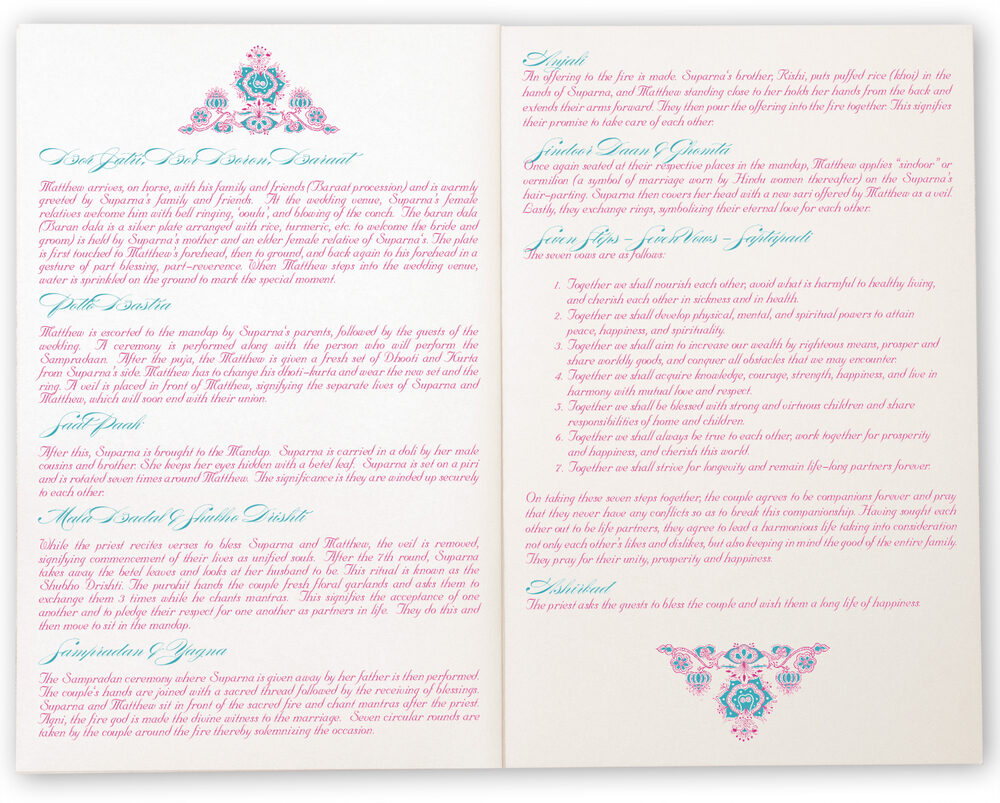 Bor Jatri, Bor Boron, Baraat
Matthew arrives, on horse, with his family and friends (Baraat procession) and is warmly
greeted by Suparna's family and friends. At the wedding venue, Suparna's female
relatives welcome him with bell ringing, 'ooulu', and blowing of the conch. The baran dala
(Baran dala is a silver plate arranged with rice, turmeric, etc. to welcome the bride and
groom) is held by Suparna's mother and an elder female relative of Suparna's. The plate
is first touched to Matthew's forehead, then to ground, and back again to his forehead in a
gesture of part blessing, part-reverence. When Matthew steps into the wedding venue,
water is sprinkled on the ground to mark the special moment.
Potto Bastra
Matthew is escorted to the mandap by Suparna's parents, followed by the guests of the
wedding. A ceremony is performed along with the person who will perform the
Sampradaan. After the puja, the Matthew is given a fresh set of Dhooti and Kurta
from Suparna's side. Matthew has to change his dhoti-kurta and wear the new set and the
ring. A veil is placed in front of Matthew, signifying the separate lives of Suparna and
Matthew, which will soon end with their union.
Saat Paak
After this, Suparna is brought to the Mandap. Suparna is carried in a doli by her male
cousins and brother. She keeps her eyes hidden with a betel leaf. Suparna is set on a piri
and is rotated seven times around Matthew. The significance is they are winded up securely
to each other.
Mala Badal & Shubho Drishti
While the priest recites verses to bless Suparna and Matthew, the veil is removed,
signifying commencement of their lives as unified souls. After the 7th round, Suparna
takes away the betel leaves and looks at her husband to be. This ritual is known as the
Shubho Drishti. The purohit hands the couple fresh floral garlands and asks them to
exchange them 3 times while he chants mantras. This signifies the acceptance of one
another and to pledge their respect for one another as partners in life. They do this and
then move to sit in the mandap.
Sampradan & Yagna
The Sampradan ceremony where Suparna is given away by her father is then performed.
The couple's hands are joined with a sacred thread followed by the receiving of blessings.
Suparna and Matthew sit in front of the sacred fire and chant mantras after the priest.
Agni, the fire god is made the divine witness to the marriage. Seven circular rounds are
taken by the couple around the fire thereby solemnizing the occasion.
Anjali
An offering to the fire is made. Suparna's brother, Rishi, puts puffed rice (khoi) in the
hands of Suparna, and Matthew standing close to her holds her hands from the back and
extends their arms forward. They then pour the offering into the fire together. This signifies
their promise to take care of each other.
Sindoor Daan & Ghomta
Once again seated at their respective places in the mandap, Matthew applies "sindoor" or
vermilion (a symbol of marriage worn by Hindu women thereafter) on the Suparna's
hair-parting. Suparna then covers her head with a new sari offered by Matthew as a veil.
Lastly, they exchange rings, symbolizing their eternal love for each other.
Seven Steps - Seven Vows - Saptapadi
The seven vows are as follows:
1. Together we shall nourish each other, avoid what is harmful to healthy living,
and cherish each other in sickness and in health.
2. Together we shall develop physical, mental, and spiritual powers to attain
peace, happiness, and spirituality.
3. Together we shall aim to increase our wealth by righteous means, prosper and
share worldly goods, and conquer all obstacles that we may encounter.
4. Together we shall acquire knowledge, courage, strength, happiness, and live in
harmony with mutual love and respect.
5. Together we shall be blessed with strong and virtuous children and share
responsibilities of home and children.
6. Together we shall always be true to each other, work together for prosperity
and happiness, and cherish this world.
7. Together we shall strive for longevity and remain life-long partners forever.
On taking these seven steps together, the couple agrees to be companions forever and pray
that they never have any conflicts so as to break this companionship. Having sought each
other out to be life partners, they agree to lead a harmonious life taking into consideration
not only each other's likes and dislikes, but also keeping in mind the good of the entire family.
They pray for their unity, prosperity and happiness.
Ashirbad
The priest asks the guests to bless the couple and wish them a long life of happiness.